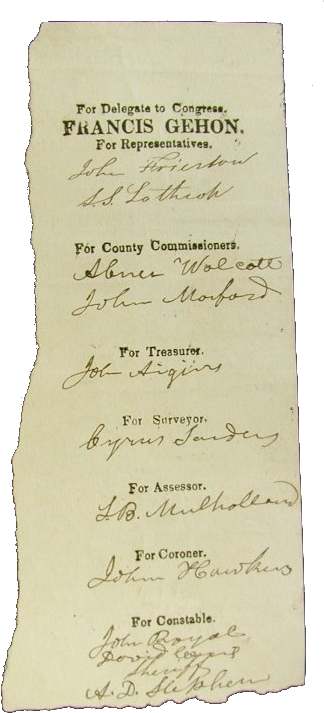 For Delegate to Congress.
FRANCIS GEHON.
For Representatives.
John Frierson
S.S. Lathrop
For County Commissioners.
Abner Wolcott
John Morford
For Treasurer.
John
For Surveyor.
Cyrus Sanders
For Assessor.
S.B. Mulholland
For Coroner.
John Hawkins
For Constable.
John Royal
David
Sheriff
A.D. Stephen